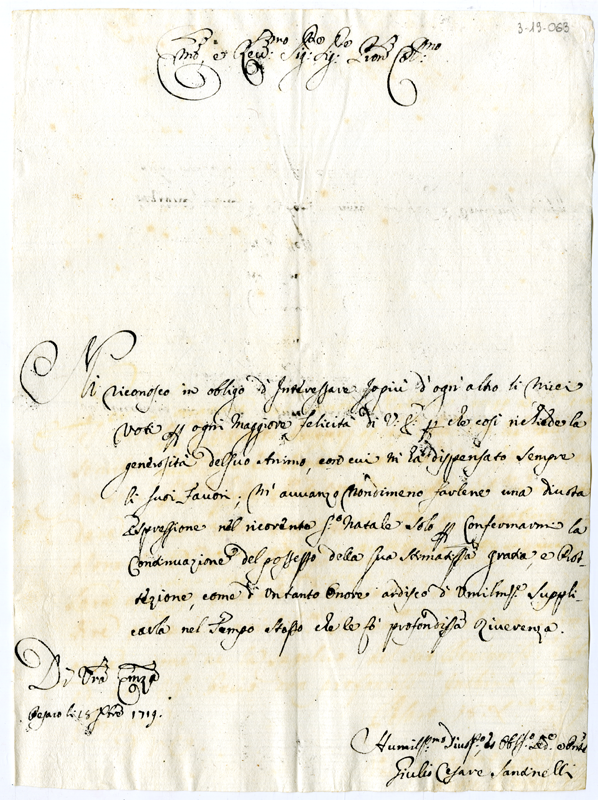 3-19-063
Em̃o, e Reu:mo Sig:re Sig:re Pron Col:mo
Mi riconosco in obligo d'Interessare sopiù d'ogn'altro li miei
Voti per ogni maggiore felicità di V. E. che così richiede la
generosità del suo Animo, con cui m'ha dispensato sempre
li suoi favori; M'avvanzo nondimeno farlene una divota
Espressione nel ricorrente S.to Natale solo per confermarmi la
Continuazione del possesso della sua stimatissa grazia, e Prot-
tezione, come d'un tanto Onore ardisco d'umilmte suppli-
carla nel tempo stesso che le fò profondissa riverenza.
Di Vra Emza
Pesaro li 15 Xbre 1719.
Humiliss:mo Diuotiss:o et Obliss:o
Giulio Cesare Sandinelli